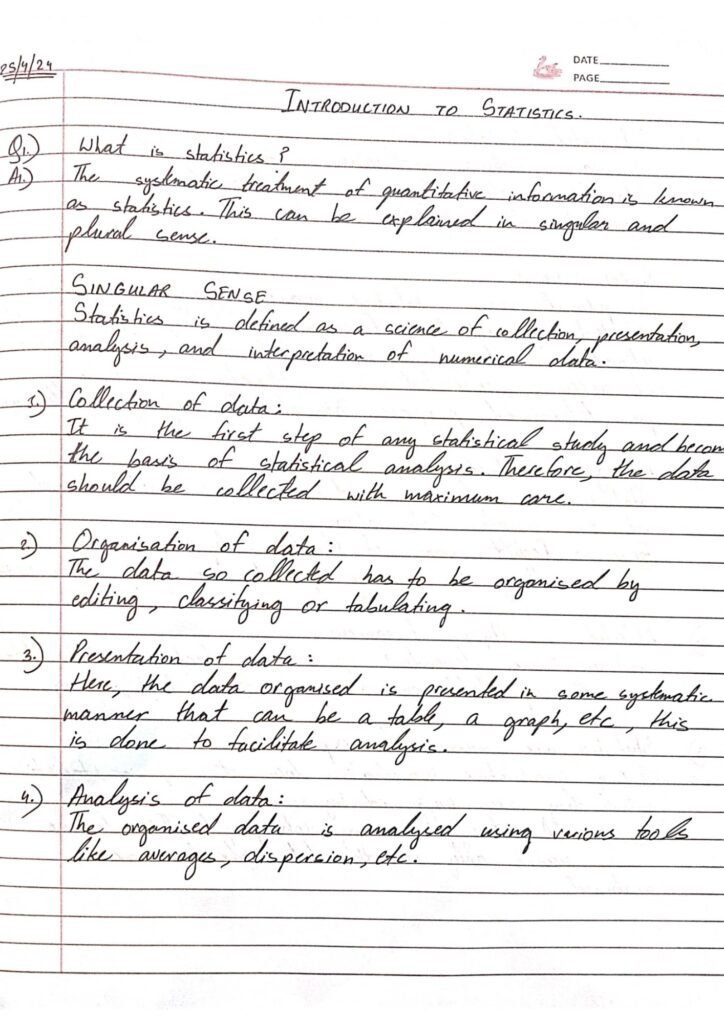 25/4/24
DATE
PAGE
INTRODUCTION TO STATISTICS.
Q1.) What is statistics?
A1.) The systematic treatment of quantitative information is known
as statistics. This can be explained in singular and
plural sense.
SINGULAR SENSE
Statistics is defined as a science of collection, presentation,
analysis, and interpretation of numerical data.
1.) Collection of data:
It is the first step of any statistical study and becom
the basis of statistical analysis. Therefore, the data
should be collected with maximum care.
2.) Organisation of data:
The data so collected has to be organised by
editing, classifying or tabulating.
3.) Presentation of data:
Here, the data organised is presented in some systematic
manner that can be a table, a graph, etc, this
is done to facilitate analysis.
4.) Analysis of data:
The organised data is analysed using various tools
like averages, dispersion, etc.